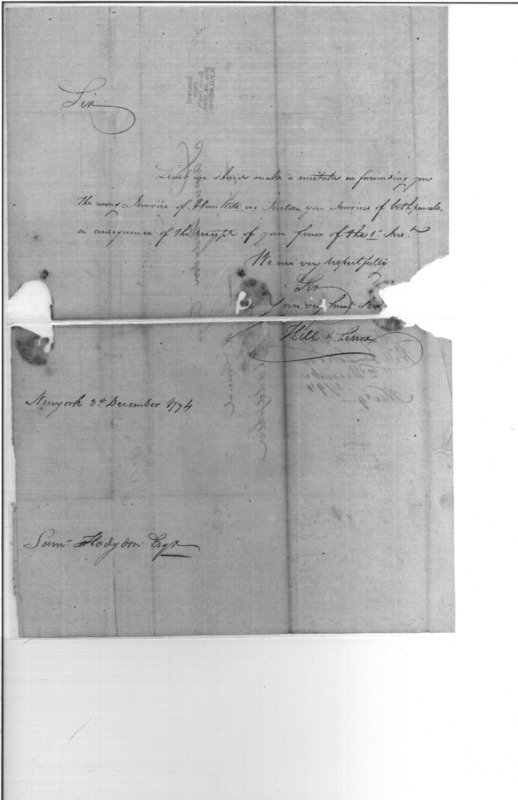 Sir
Least we should make a mistake in forwarding you
the wrong Invoice of Blankets we Inclose you Invoices of both parcels
in consequence of the receipt of your favor of the 1st Inst.
We are very respectfully
Sir
Your very humb Ser
Hill & Lenox
Newyork 3d December 1794
Saml Hodgdon Esqr